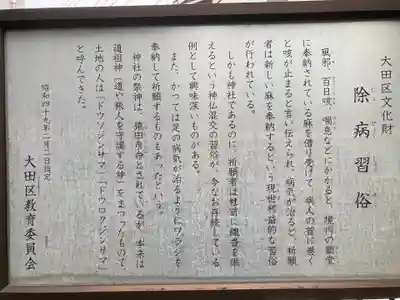 大田区文化財
除病習俗
風邪、百日咳、喘息などにかかると、境内の御堂
に奉納されている麻を借り受けて、病人の首に巻く
と咳が止まると言い伝えられ、病気が治ると、祈願
者は新しい麻を奉納するという現世利益的な習俗
が行われている。
しかも神社であるのに、祈願者は社前に線香を供
えるという神仏混交の習俗が、今なお存続している
例として興味深いものがある。
また、かつては足の病気が治るようワラジを
奉納して祈願するものもあったという。
神社の祭神は、猿田彦命とされているが、本来は
道祖神(道や旅人を守護する神)をまつったもので、
土地の人は「ドウソジンサマ」、「ドウロクジンサマ」
と呼んできた。
昭和四十九年二月二日指定
大田区教育委員会